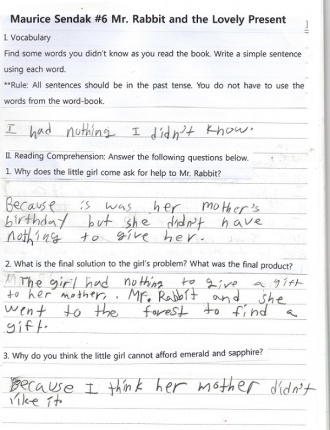 Maurice Sendak #6 Mr. Rabbit and the Lovely Present
1
I. Vocabulary
Find some words you didn't know as you read the book. Write a simple sentence
using each word.
**Rule: All sentences should be in the past tense. You do not have to use the
words from the word-book.
I had nothing I didn't know.
II. Reading Comprehension: Answer the following questions below.
1. Why does the little girl come ask for help to Mr. Rabbit?
Because is was her mother's
birthday but she didn't have
nothing to give her.
2. What is the final solution to the girl's problem? What was the final product?
The girl had nothing to give a gift
to her mother. Mr. Rabbit and she
went to the forest to find a
gift.
3. Why do you think the little girl cannot afford emerald and sapphire?
Because I think her mother didn't
like it